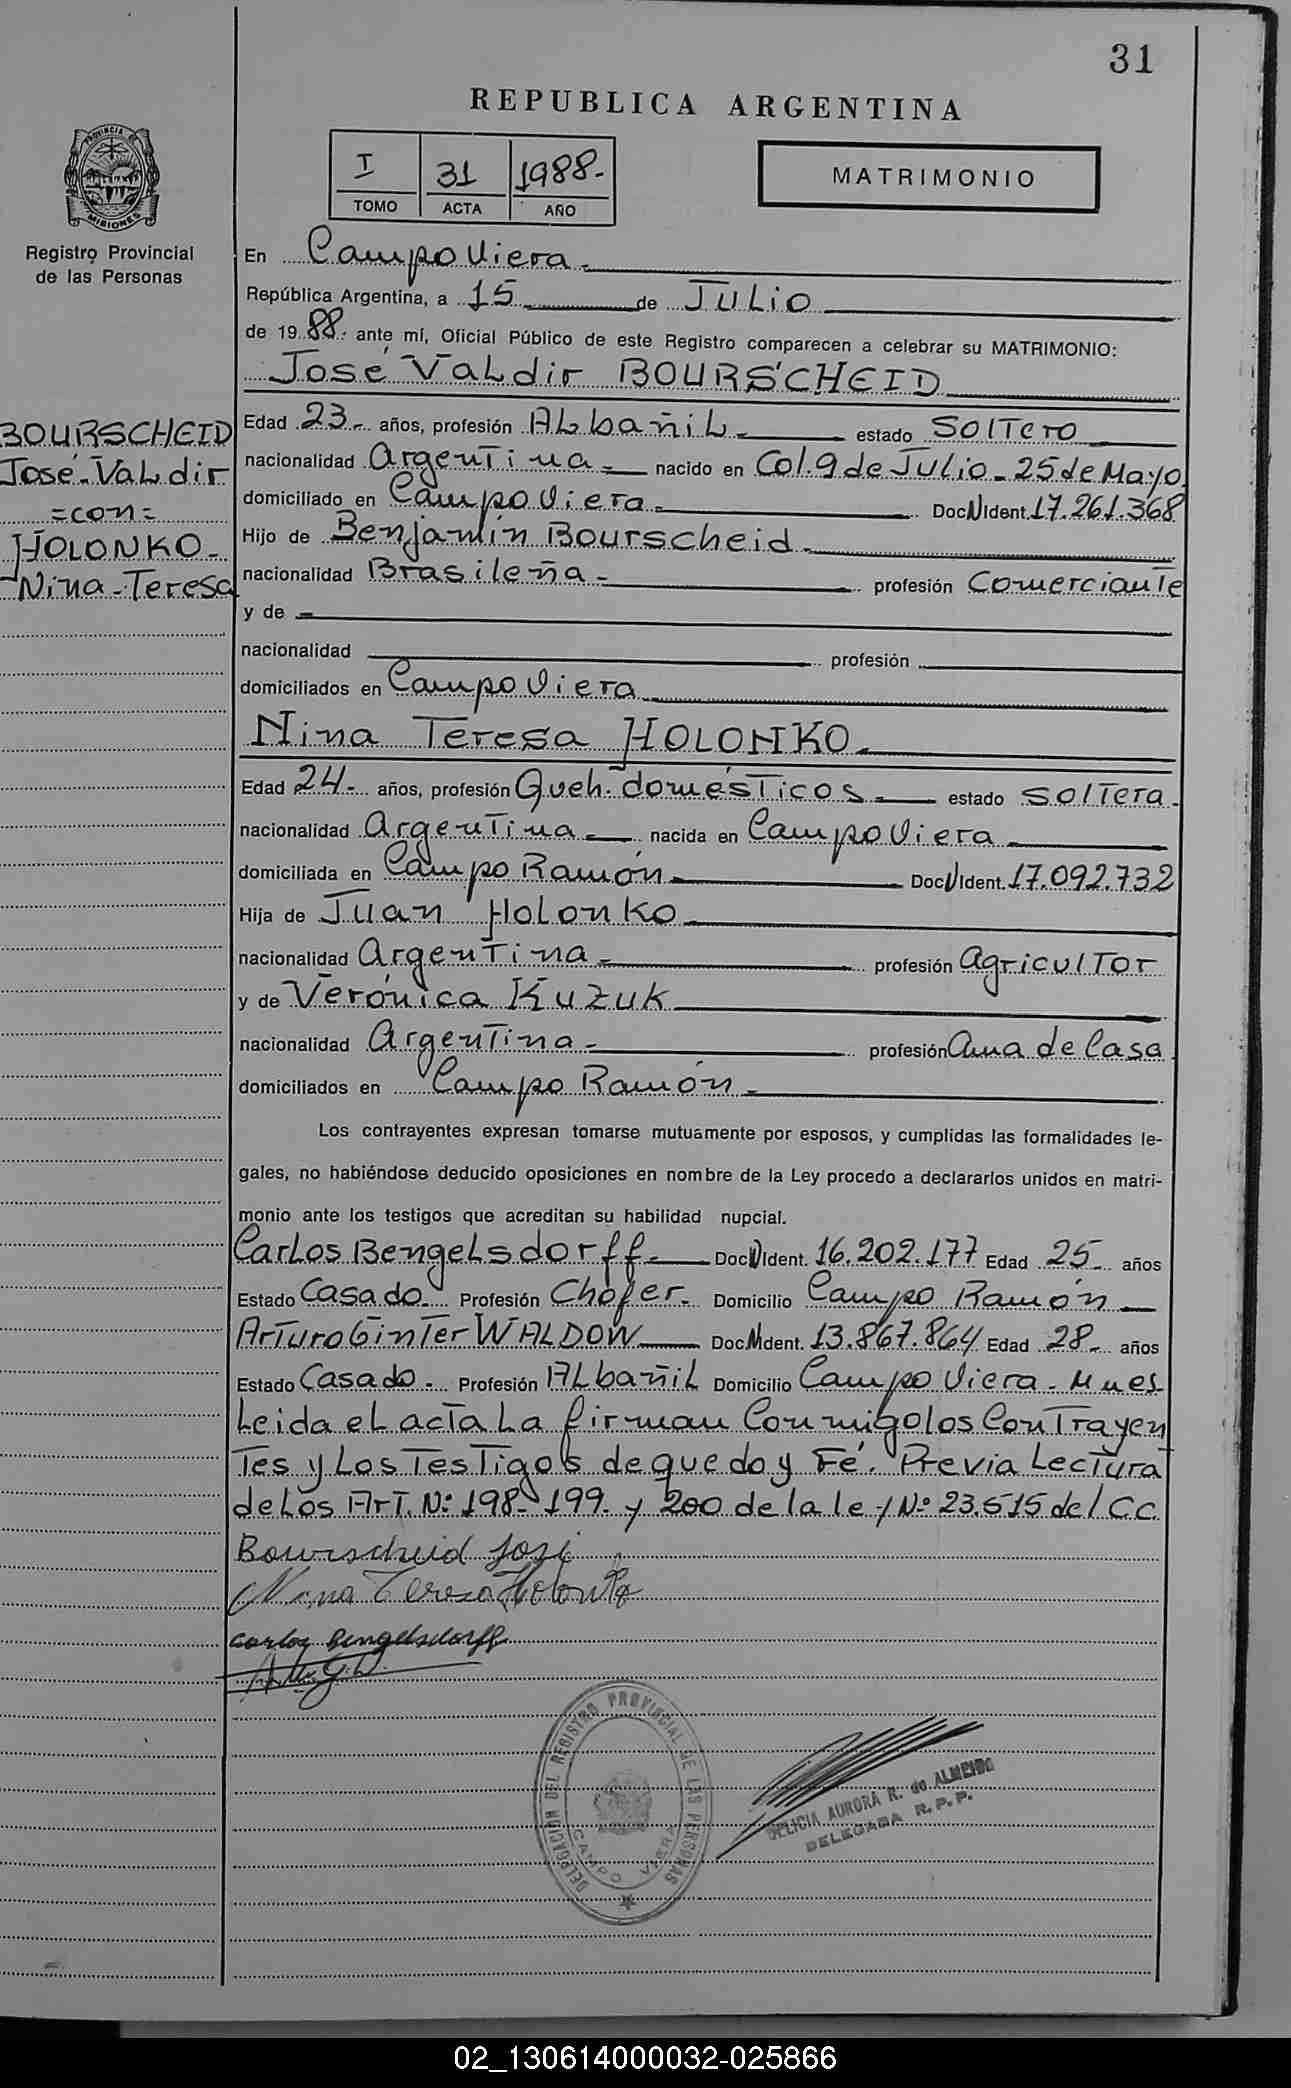 31
REPUBLICA ARGENTINA
I 31 1988.-
TOMO ACTA AÑO
MATRIMONIO
PROVINCIA DE
MISIONES
Registro Provincial
de las Personas
BOURSCHEID
José-Valdir
=con=
HOLONKO-
Nina-Teresa
En Campo Viera.-
República Argentina, a 15 de Julio
de 19 88.- ante mí, Oficial Público de este Registro comparecen a celebrar su MATRIMONIO:
José Valdir BOURSCHEID
Edad 23.- años, profesión Albañil.- estado Soltero
nacionalidad Argentina.- nacido en Col. 9 de Julio - 25 de Mayo
domiciliado en Campo Viera.- Doc N Ident. 17.261.368
Hijo de Benjamín Bourscheid.-
nacionalidad Brasileña.- profesión Comerciante
y de -
nacionalidad profesión
domiciliados en Campo Viera
Nina Teresa HOLONKO.-
Edad 24.- años, profesión Queh. domésticos.- estado soltera.
nacionalidad Argentina.- nacida en Campo Viera
domiciliada en Campo Ramón.- Doc N Ident. 17.092.732
Hija de Juan Holonko
nacionalidad Argentina.- profesión Agricultor
y de Verónica Kuzuk
nacionalidad Argentina.- profesión Ama de Casa
domiciliados en Campo Ramón.-
Los contrayentes expresan tomarse mutuamente por esposos, y cumplidas las formalidades le-
gales, no habiéndose deducido oposiciones en nombre de la Ley procedo a declararlos unidos en matri-
monio ante los testigos que acreditan su habilidad nupcial.
Carlos Bengelsdorff.- Doc N Ident. 16.202.177 Edad 25.- años
Estado Casado.- Profesión Chófer.- Domicilio Campo Ramón
Arturo Ginter WALDOW Doc N Ident. 13.867.864 Edad 28.- años
Estado Casado.- Profesión Albañil Domicilio Campo Viera. Mnes
Leida el acta la firman Conmigo los Contrayen
tes y los Testigos de que doy Fé. Previa Lectura
de los Art. Nº 198- 199. y 200 de la ley Nº 23.515 del C.C.
Bourscheid José
Nina Teresa Holonko
Carlos Bengelsdorff
DELEGACION DEL REGISTRO PROVINCIAL DE LAS PERSONAS
CAMPO VIERA
DELICIA AURORA R. de ALMEIDA
DELEGADA R. P. P.
02_130614000032-025866